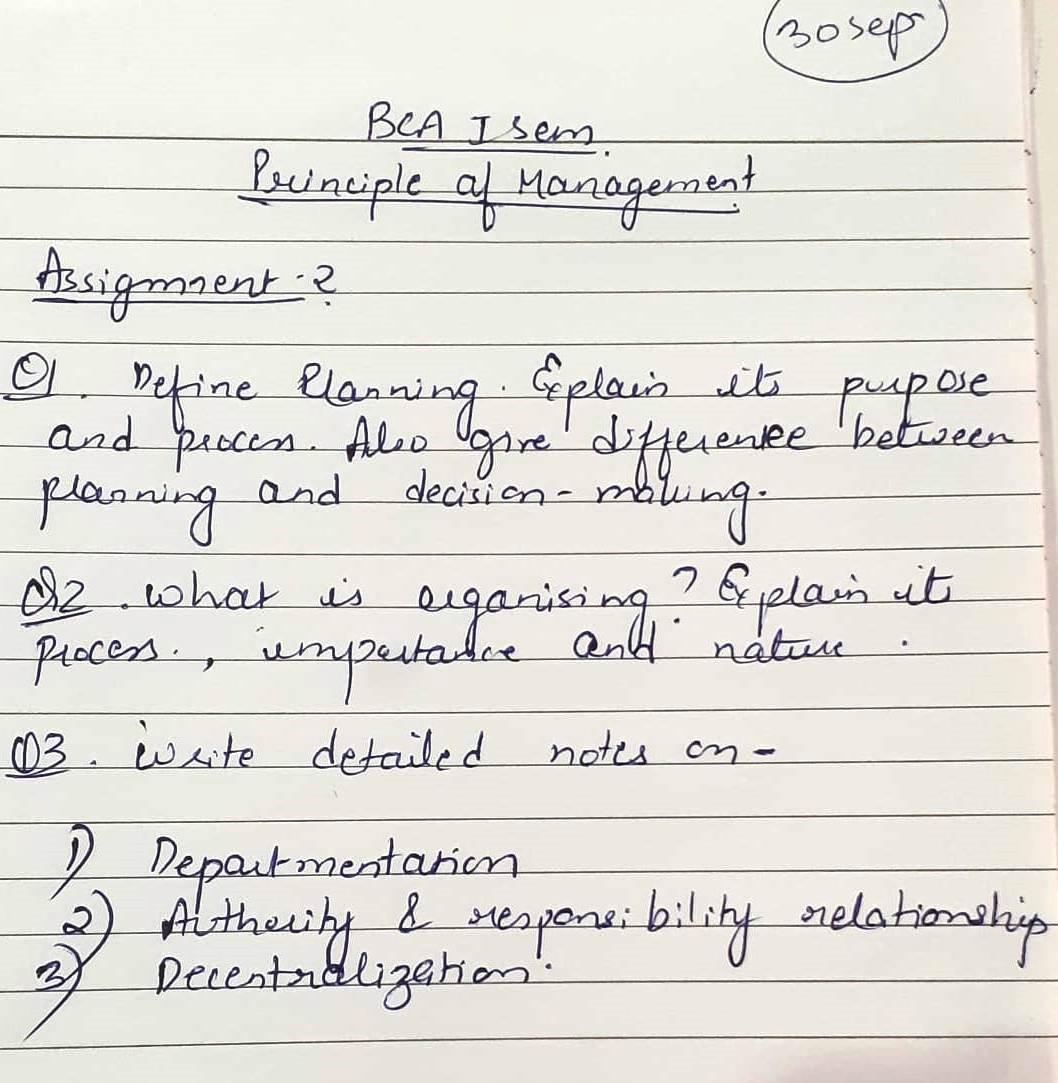 30 sep
BCA I sem.
Principle of Management
Assignment - 2
Q1. Define Planning. Explain its purpose
and process. Also give difference between
planning and decision-making.
Q2. What is organising? Explain its
process., importance and nature.
Q3. Write detailed notes on -
1) Departmentation
2) Authority & responsibility relationship
3) Decentralization.